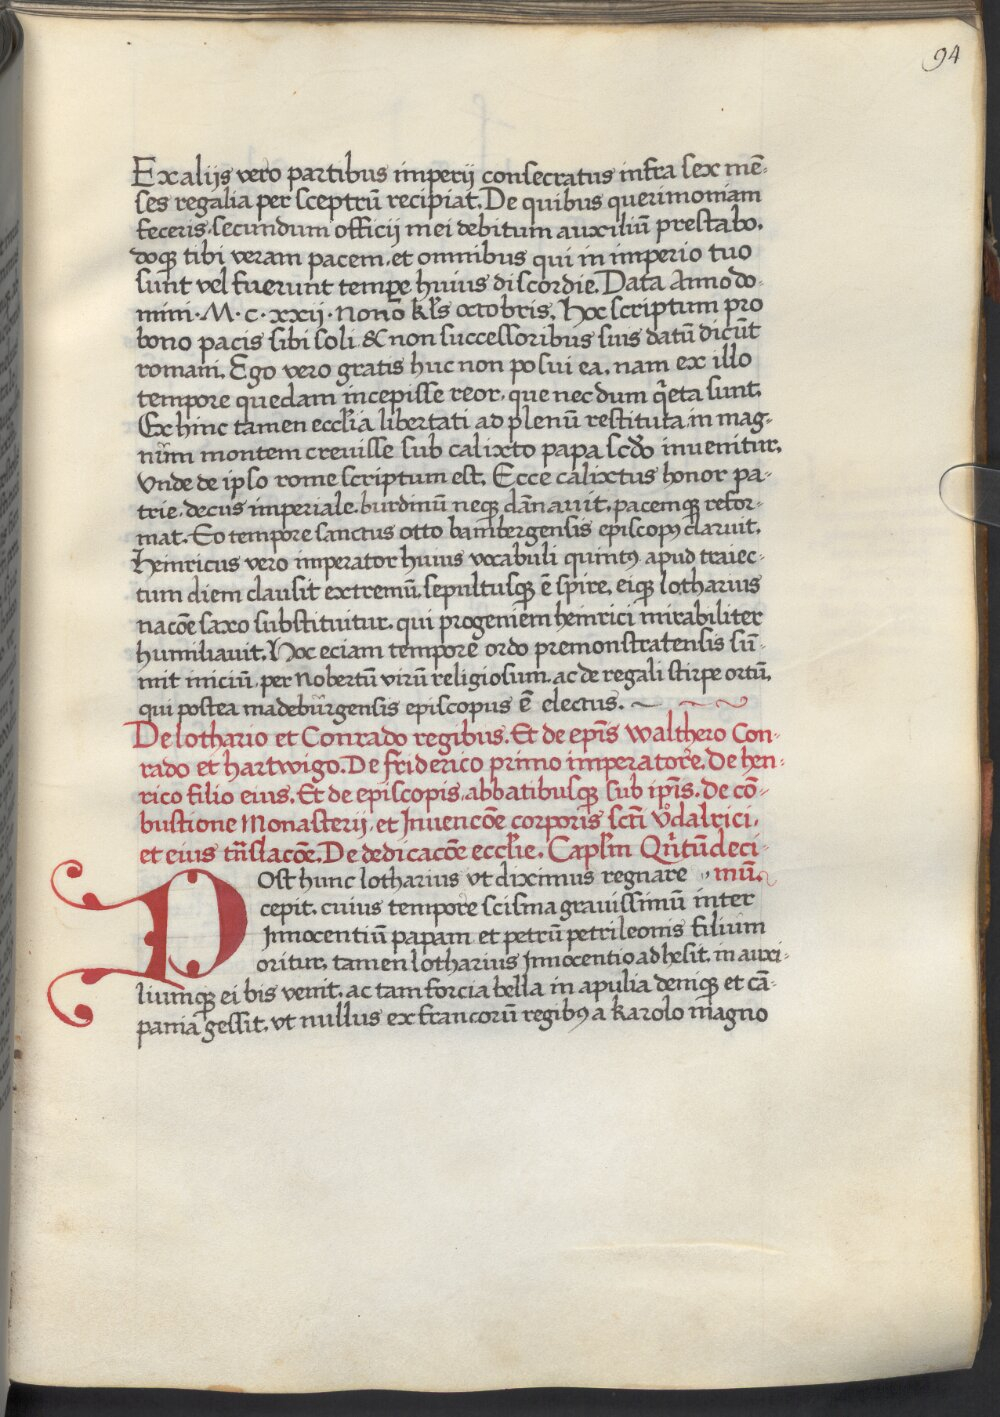 94
Ex alijs vero partibus imperij consecratus infra sex mē-
ses regalia per sceptrū recipiat. De quibus querimoniam
feceris. secundum officij mei debitum auxiliū prestabo.
doqꝫ tibi veram pacem. et omnibus qui in imperio tuo
sunt vel fuerunt tempe huius discordie. Data Anno do-
mini · M · c · xxii · nono kl̄s octobris. Hoc scriptum pro
bono pacis sibi soli & non successoribus suis datū dicūt
romani. Ego vero gratis huc non posui ea. nam ex illo
tempore quedam incepisse reor. que nec dum q̄eta sunt.
Ex hinc tamen eccl̄ia libertati ad plenū restituta in mag-
num montem crevisse sub calixto papa scd̄o invenitur.
Vnde de ipso rome scriptum est. Ecce calixtus honor pa-
trie. decus imperiale. burdinū neqꝫ dānavit. pacemqꝫ refor-
mat. Eo tempore sanctus otto bambergensis episcopꝰ claruit.
Heinricus vero imperator huius vocabuli quintꝰ apud traiec-
tum diem clausit extremū. sepultusqꝫ ē spire. eiqꝫ lotharius
nacōe saxo substituitur. qui progeniem heinrici mirabiliter
humiliavit. Hoc eciam tempore ordo premonstratensis sū-
mit iniciū. per Nobertū virū religiosum. ac de regali stirpe ortū.
qui postea madeburgensis episcopus ē electus.
De lothario et Conrado regibus. Et de ep̄is walthero Con-
rado et hartwigo. De friderico primo imperatore. De hen-
rico filio eius. Et de episcopis. abbatibusqꝫ sub ip̄is. de cō-
bustione Monasterij. et Invencōe corporis sct̄i vͦdalrici.
et eius trn̄slacōe. De dedicacōe eccl̄ie. Capl̄m Qr̄tūdeci-
Post hunc lotharius vt diximus regnare mū.
cepit. cuius tempore scisma gravissimū inter
Innocentiū papam et petrū petrileonis filium
oritur. tamen lotharius Innocentio adhesit. in auxi-
liumqꝫ ei bis venit. ac tam forcia bella in apulia deniqꝫ et cā-
pania gessit. vt nullus ex francorū regibꝰ a karolo magno